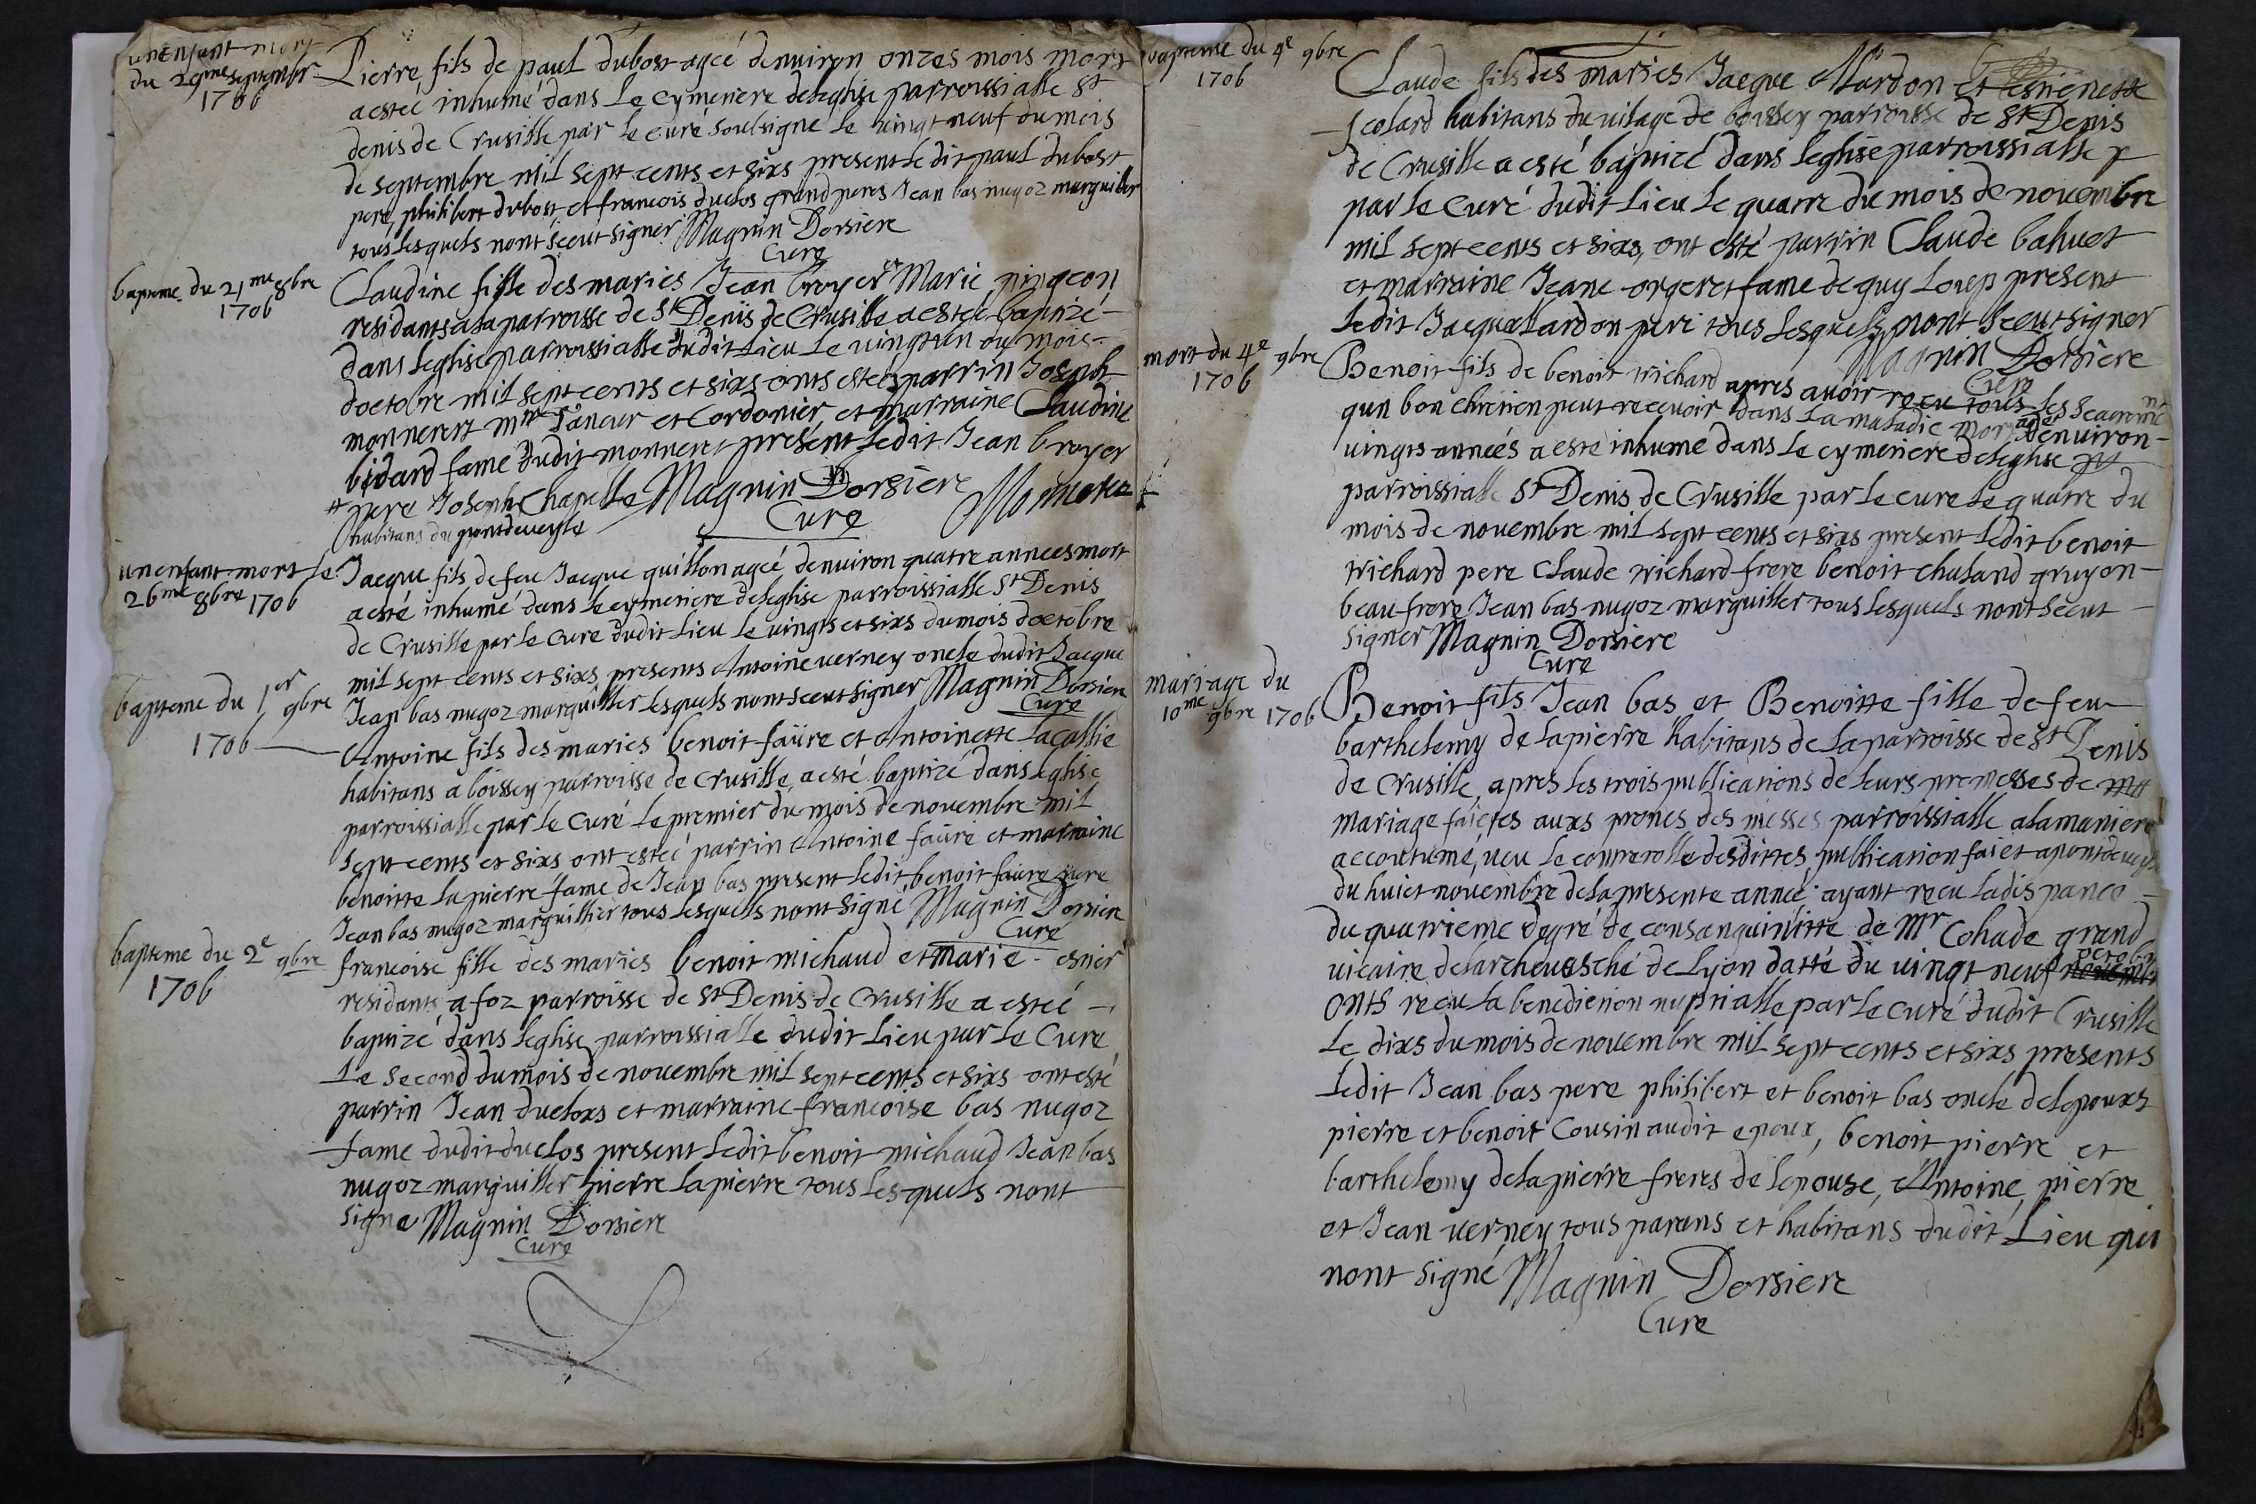 un enfant mort
du 29me septembr
1706
Pierre fils de paul dubost ageé denviron onzes mois mort
a esteé inhumé dans Le cymeriere deleglise parroissialle St
denis de Crusille par le curé soubsigne le vingt neuf du mois
de septembre mil sept cents et sixs present le dit paul dubost
pere, philibert dubost et francois duclos grand peres Jean bas nugoz marguiller
tous lesquels nont sceut signer Magnin Dorsiere
Curé
bapteme du 21me 8bre
1706
Claudine fille des maries Jean broyer et Marie pingeon
residants a la parroisse de St Denis de Crusille a esteé baptizé
dans leglise parroissialle dudit Lieu Le vingt un du mois
doctobre mil sept cents et sixs onts esteé parrin Joseph
monneret mtre Taneur et Cordonier et marraine Claudine
bidard fame dudit monneret présent ledit Jean broyer
pere Joseph Chapelle Magnin Dorsiere Monneret
habitans du pontdeveyle Curé
un enfant mort le
26me 8bre 1706
Jacque fils de feu Jacque guillon ageé denviron quatre annees mort
a esté inhumé dans le cymeriere deleglise parroissialle St Denis
de Crusille par le curé dudit Lieu Le vingts et sixs du mois doctobre
mil sept cents et sixs presents Antoine verney oncle dudit Jacque
Jean bas nugoz marguiller lesquels nont sceut signer Magnin Dorsiere
Curé
bapteme du 1er 9bre
1706
Antoine fils des maries benoit faüre et Antoinette
habitans a boissey parroisse de Crusille, a esté baptizé dans leglise
parroissialle par le Curé Le premier du mois de novembre mil
sept cents et sixs ont esteé parrin Antoine faüre et marraine
benoitte lapierre fame de Jean bas present ledit benoit faüre pere
Jean bas nugoz marguillier tous lesquels nont signé Magnin Dorsiere
Curé
bapteme du 2e 9bre
1706
francoise fille des maries benoit michaud et marie esnier
residants a foz parroisse de St Denis de Crusille a esteé
baptizé dans leglise parroissialle dudit Lieu par Le Curé
Le second du mois de novembre mil sept cents et sixs ont esté
parrin Jean ducloxs et marraine francoise bas nugoz
fame dudit duclos present ledit benoit michaud Jean bas
nugoz marguiller pierre lapierre tous lesquels nont
signe Magnin Dorsiere
Curé
bapteme du 4e 9bre
1706
Claude fils des maries Jacque Mardon et esnienette
scolard habitans du vilage de boissey parroisse de St Denis
de Crusille a esté baptizé dans leglise parroissialle p
par le Curé dudit Lieu Le quatre du mois de novembre
mil sept cents et sixs, ont esté parrin Claude bahuet
et marraine Jeane orgeret fame de guy Loup present
Ledit Jacque Lardon pere tous lesquels nont sceut signer
Magnin Dorsiere
Curé
mort du 4e 9bre
1706
Benoit fils de benoit trichard apres avoir recu tous les sacrem
qun bon chretien peut recevoir dans La maladie mort agé denviron
vingts anneés a esté inhume dans Le cymeriere deleglise pa
parroissialle St Denis de Crusille par le curé le quatre du
mois de novembre mil sept cents et sixs present ledit benoit
trichard pere Claude trichard frere benoit chaland gruyon
beau frere Jean bas nugoz marguiller tous lesquels nont sceut
signer Magnin Dorsiere
Curé
mariage du
10me 9bre 1706
Benoit fils Jean bas et Benoitte fille de feu
barthelemy de lapierre habitans de la parroisse de St Denis
de Crusille, apres les trois publications de leurs promesses de ma
mariage faictes auxs prones des messes parroissialle a la maniere
accoutumé, veu le comperolle desdittes publication faict a pontdeveyle
du huict novembre de la presente anneé ayant recu la dispance
du quatrieme degré de consanguinitte de Mr Cohade grand
vicaire delarchevesché de Lyon datté du vingt neuf novembr octobr
onts recu la benediction nuptialle par Le Curé dudit Crusille
Le dixs du mois de novembre mil sept cents et sixs presents
Ledit Jean bas pere philibert et benoit bas oncle delepouxs
pierre et benoit Cousin audit epoux, benoit pierre et
barthelemy delapierre freres de lepouse, Antoine, pierre
et Jean verney tous parans et habitans dudit Lieu qui
nont signé Magnin Dorsiere
Cure